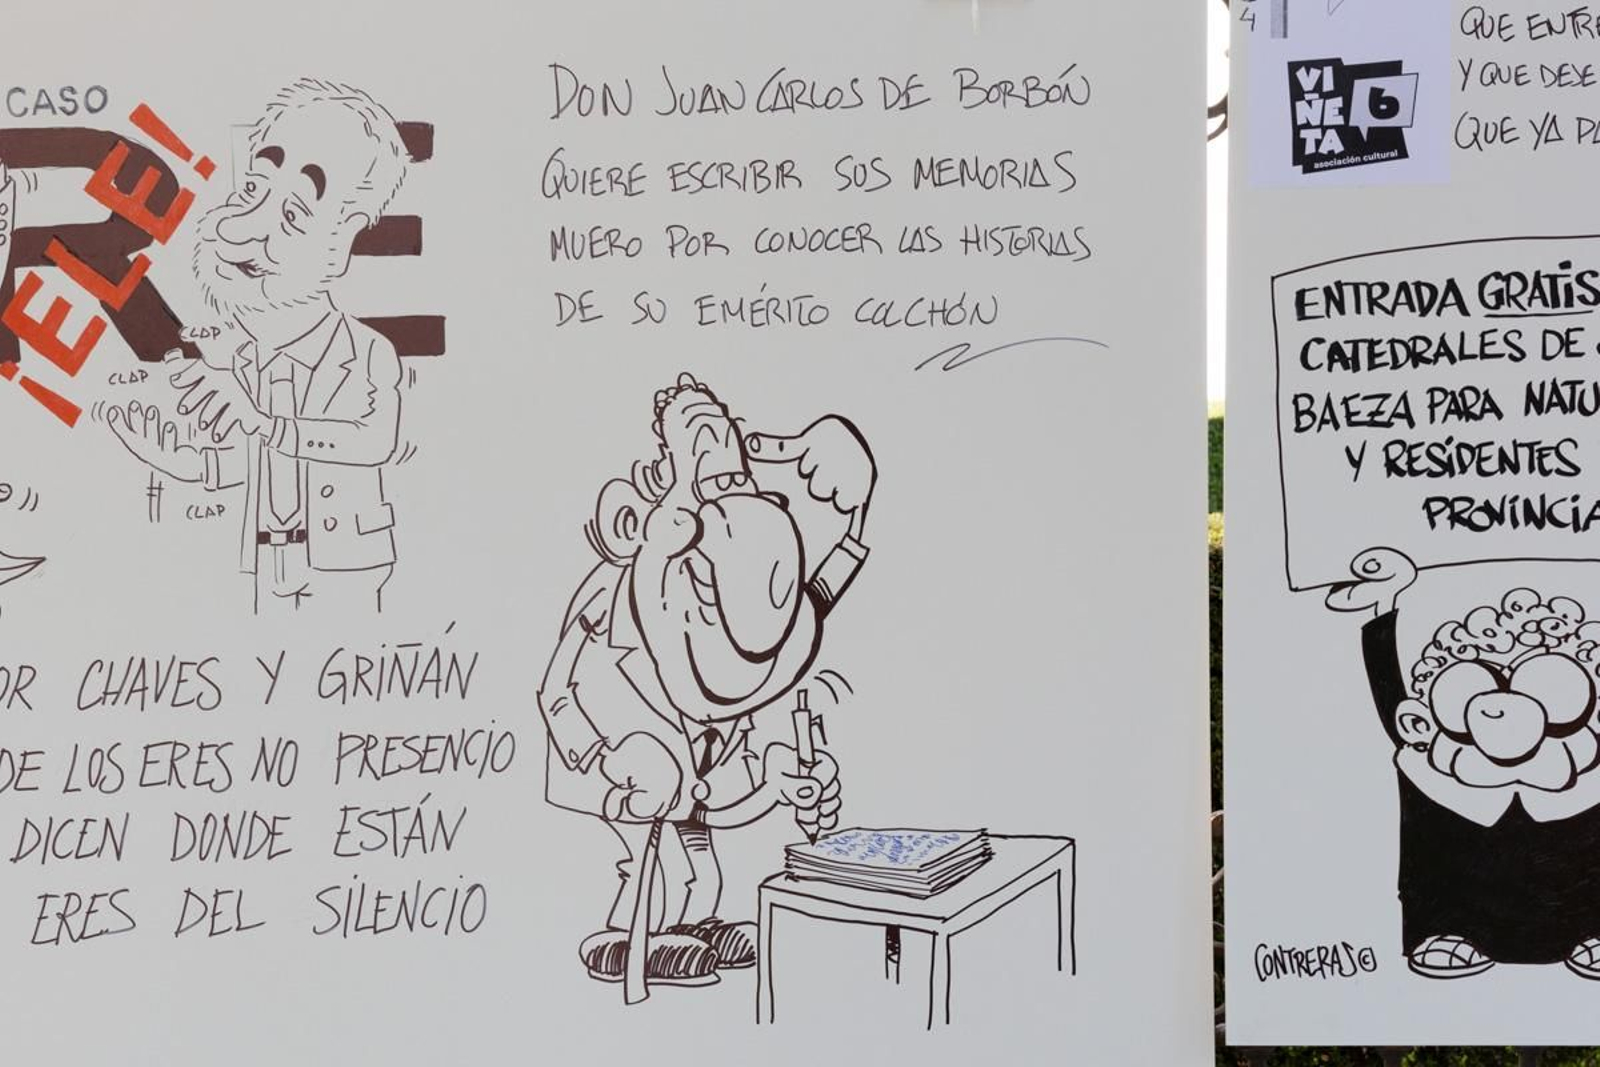 CASO
¡ELE!
CLAP
CLAP
CLAP
CHAVES Y GRIÑÁN
DE LOS ERES NO PRESENCIO
DICEN DONDE ESTÁN
ERES DEL SILENCIO
DON JUAN CARLOS DE BORBÓN
QUIERE ESCRIBIR SUS MEMORIAS
MUERO POR CONOCER LAS HISTORIAS
DE SU EMÉRITO COLCHÓN
4
VIÑETA 6
asociación cultural
QUE ENTRE
Y QUE DEJE
QUE YA
ENTRADA GRATIS
CATEDRALES DE
BAEZA PARA
Y RESIDENTES
PROVINCIA
CONTRERAS ©